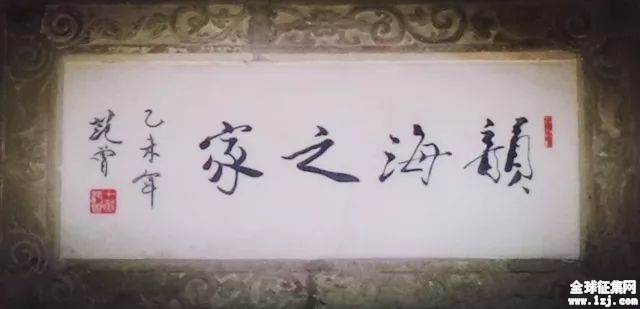 韻海之家
乙未年
范曾
全球征集网
www.1zj.com